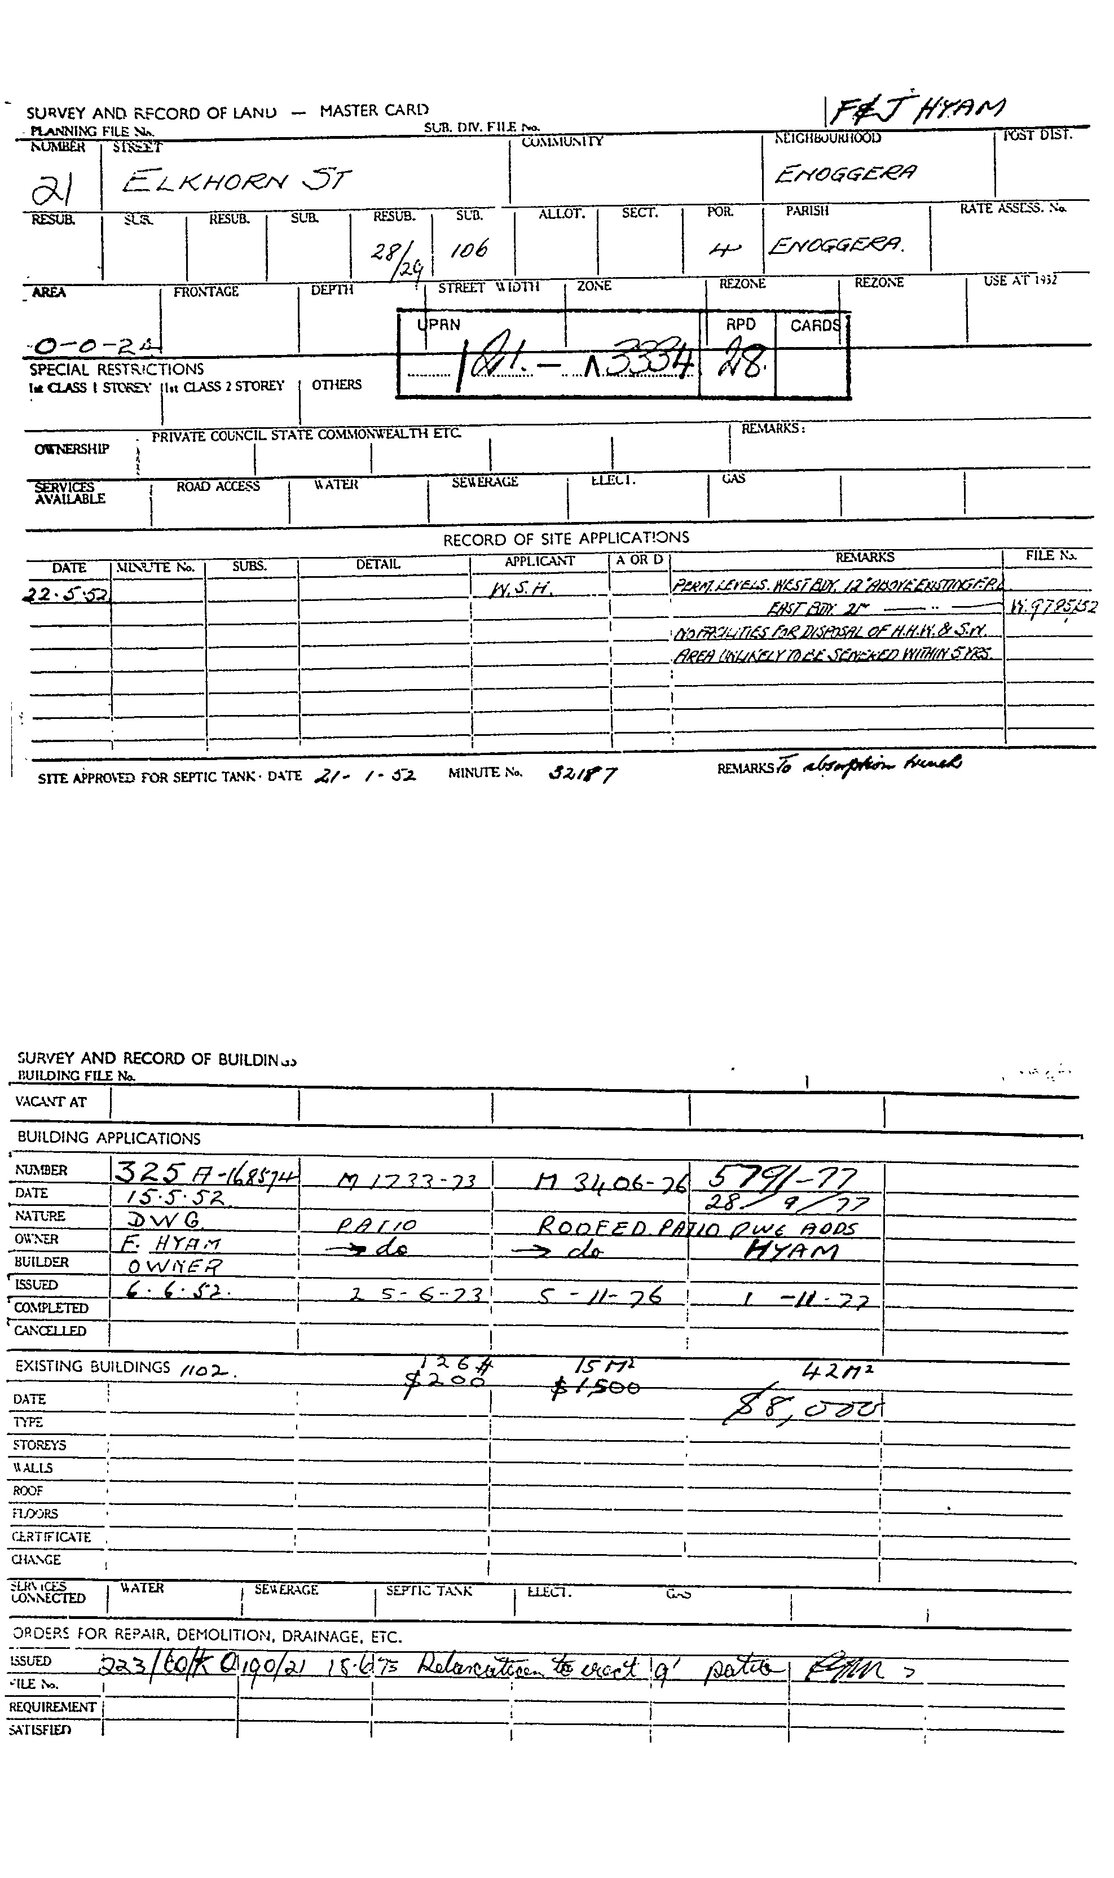 F & J HYAM
SURVEY AND RECORD OF LAND — MASTER CARD
PLANNING FILE No. SUB. DIV. FILE No.
NUMBER STREET COMMUNITY NEIGHBOURHOOD POST DIST.
21 ELKHORN ST ENOGGERA
RESUB. SUB. RESUB. SUB. RESUB. SUB. ALLOT. SECT. POR. PARISH RATE ASSESS. No.
28/29 106 4 ENOGGERA.
AREA FRONTAGE DEPTH STREET WIDTH ZONE REZONE REZONE USE AT 1952
UPRN RPD CARDS
0-0-24
3334 28.
SPECIAL RESTRICTIONS
1st CLASS 1 STOREY 1st CLASS 2 STOREY OTHERS
OWNERSHIP PRIVATE COUNCIL STATE COMMONWEALTH ETC. REMARKS:
SERVICES AVAILABLE ROAD ACCESS WATER SEWERAGE ELECT. GAS
RECORD OF SITE APPLICATIONS
DATE MINUTE No. SUBS. DETAIL APPLICANT A OR D REMARKS FILE No.
22.5.52 W.S.H. PERM. LEVELS. WEST BDY. 12" ABOVE EXISTING
EAST BDY 21" — " —
NO FACILITIES FOR DISPOSAL OF H.H.W. & S.W.
AREA UNLIKELY TO BE SEWERED WITHIN 5 YRS.
SITE APPROVED FOR SEPTIC TANK. DATE 21-1-52 MINUTE No. 32187 REMARKS To absorption trench
SURVEY AND RECORD OF BUILDINGS
BUILDING FILE No.
VACANT AT
BUILDING APPLICATIONS
NUMBER 325A-168574 M 1733-73 M 3406-76 5791-77
DATE 15.5.52. 28/9/77
NATURE DWG. PATIO ROOFED PATIO DWG ADDS
OWNER F. HYAM → do → do HYAM
BUILDER OWNER
ISSUED 6.6.52. 25-6-73 5-11-76 1-11-77
COMPLETED
CANCELLED
EXISTING BUILDINGS 1102. 126# 15 M² 42 M²
$200 $1,500
DATE $8,000
TYPE
STOREYS
WALLS
ROOF
FLOORS
CERTIFICATE
CHANGE
SERVICES CONNECTED WATER SEWERAGE SEPTIC TANK ELECT. GAS
ORDERS FOR REPAIR, DEMOLITION, DRAINAGE, ETC.
ISSUED 18.6.73 Relaxation to erect 'a' patio
FILE No.
REQUIREMENT
SATISFIED